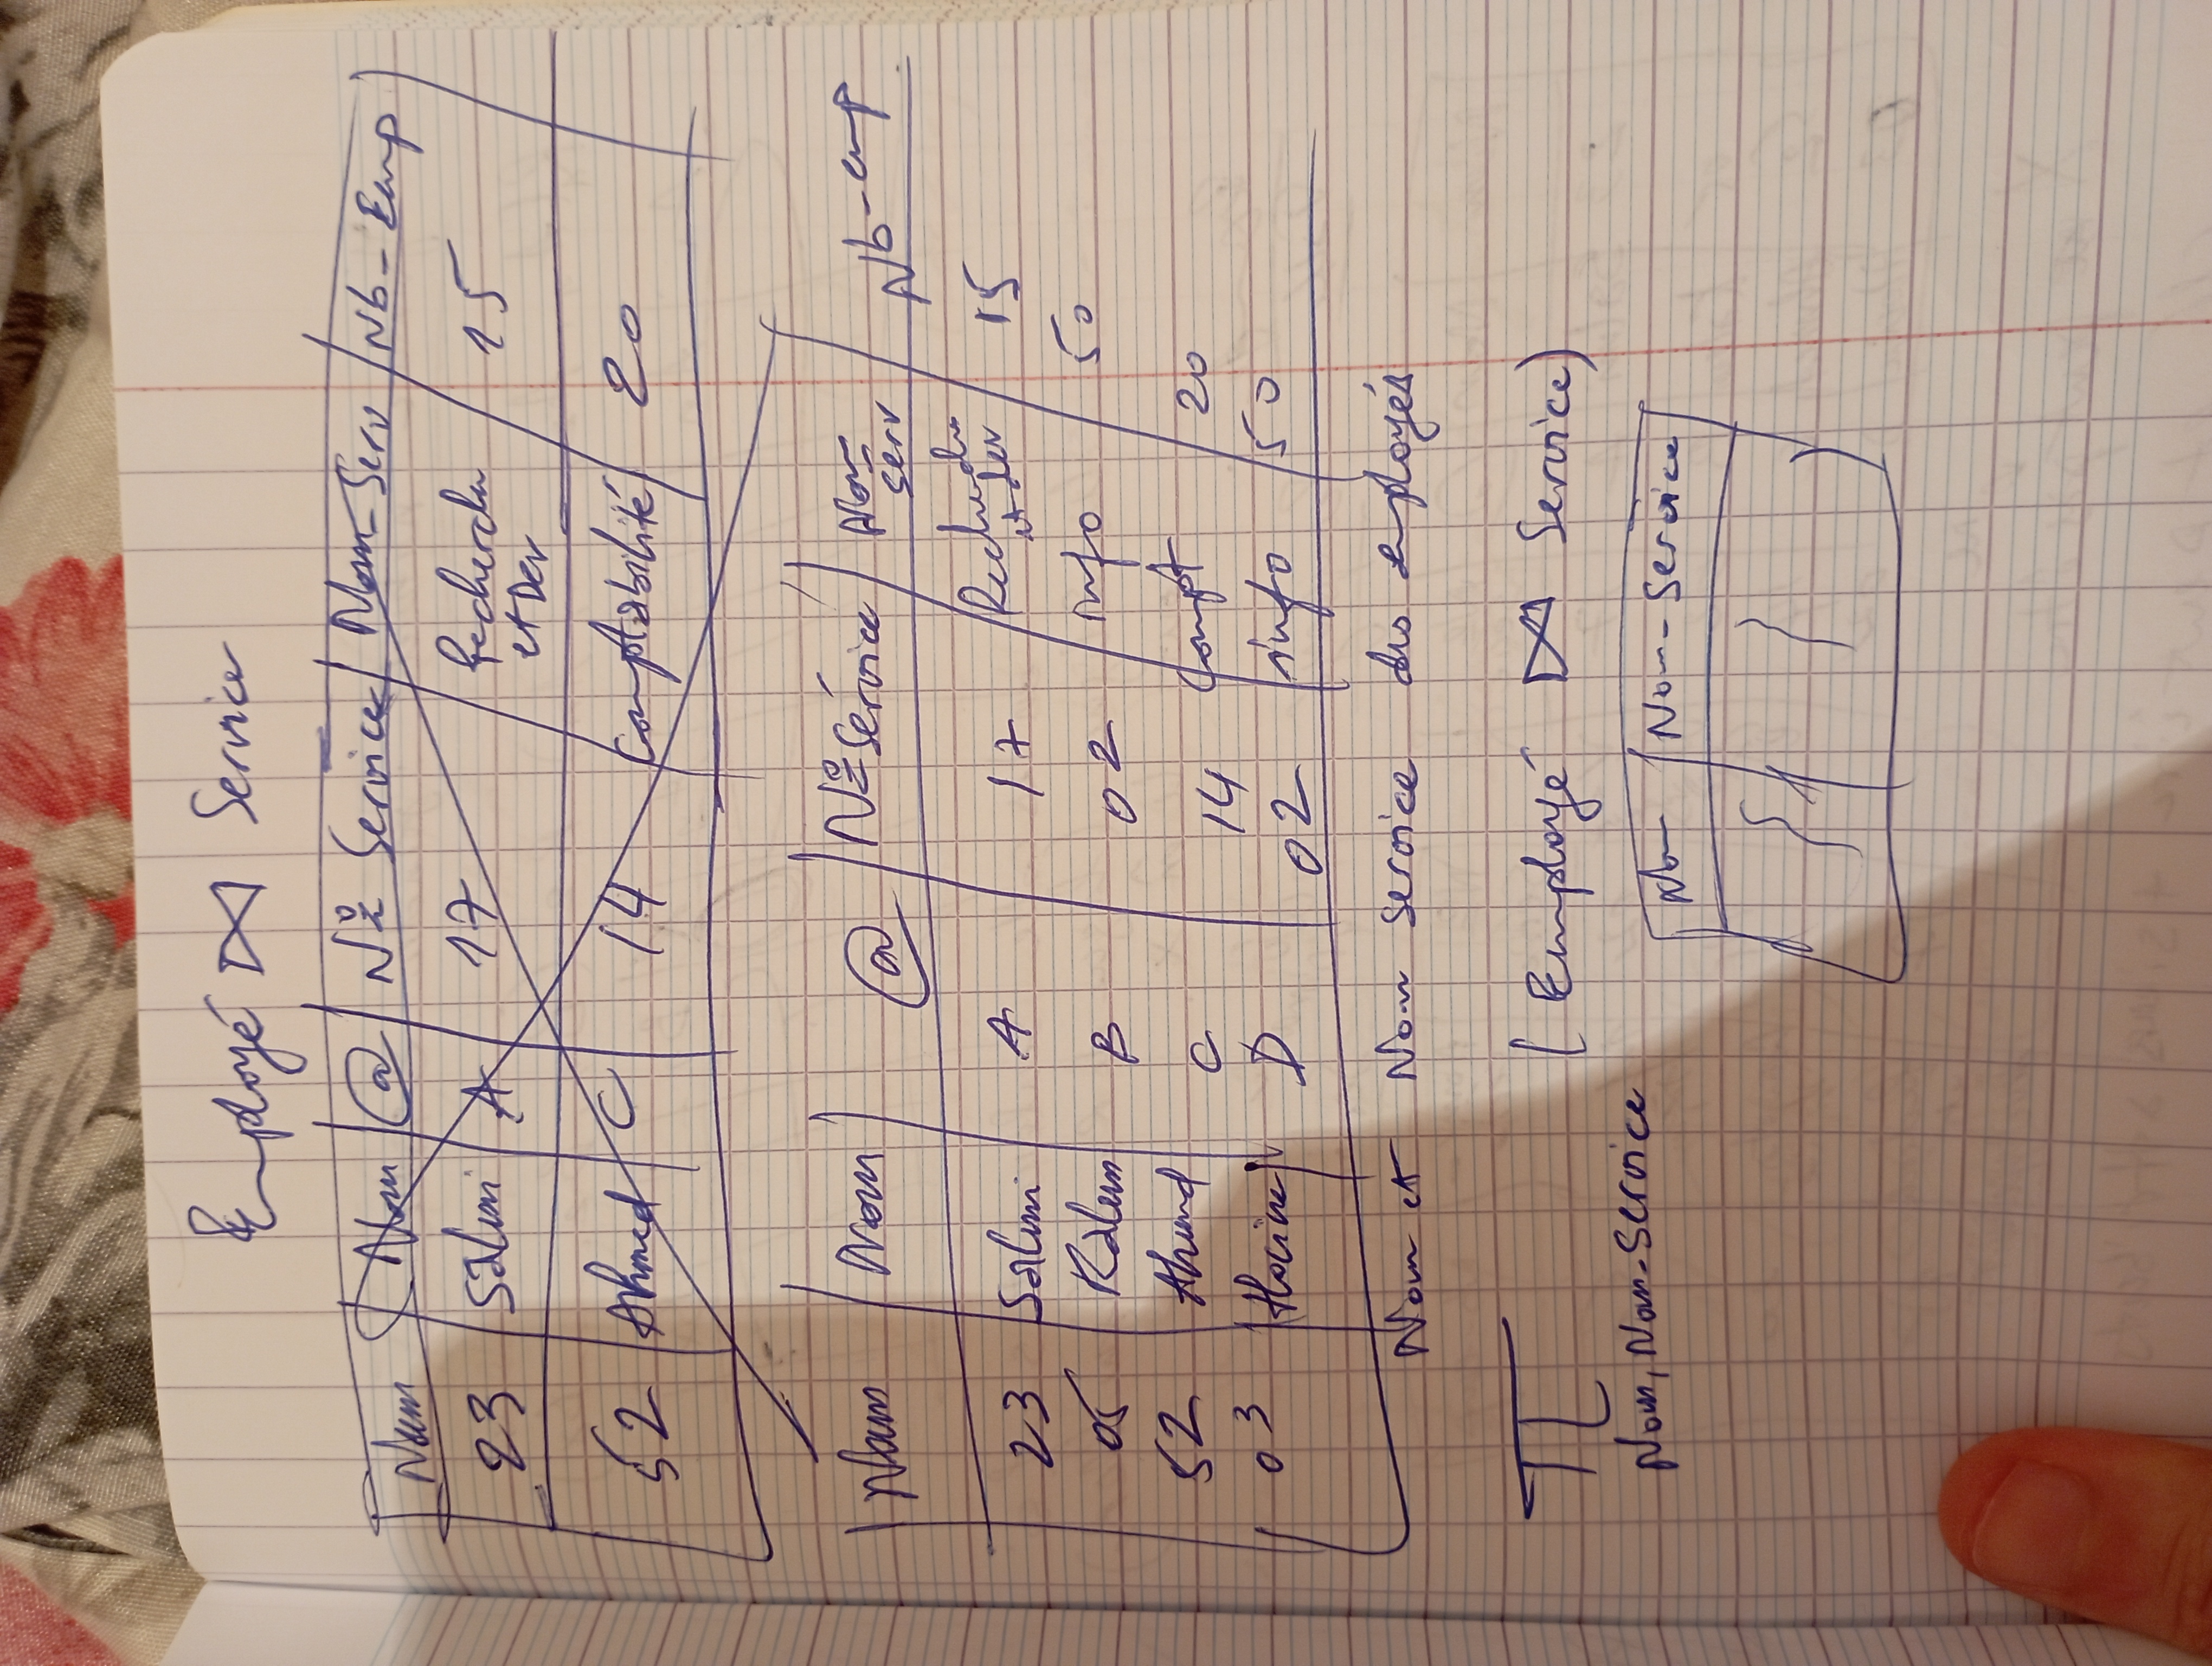 Employé ⋈ Service
Num Nom @ N° Service Nom-Serv Nb-Emp
23 Salimi A 17 Recherche et Dev 15
52 Ahmed C 14 Comptabilité 20
Num Nom @ N° Service Nom Serv Nb-emp
23 Salimi A 17 et dev 15
05 B 02 info 50
52 Ahmed C 14 Compt 20
03 Hocine D 02 info 50
Nom et Nom service des employés
π Nom, Nom-Service (Employé ⋈ Service)
Nom Nom-Service